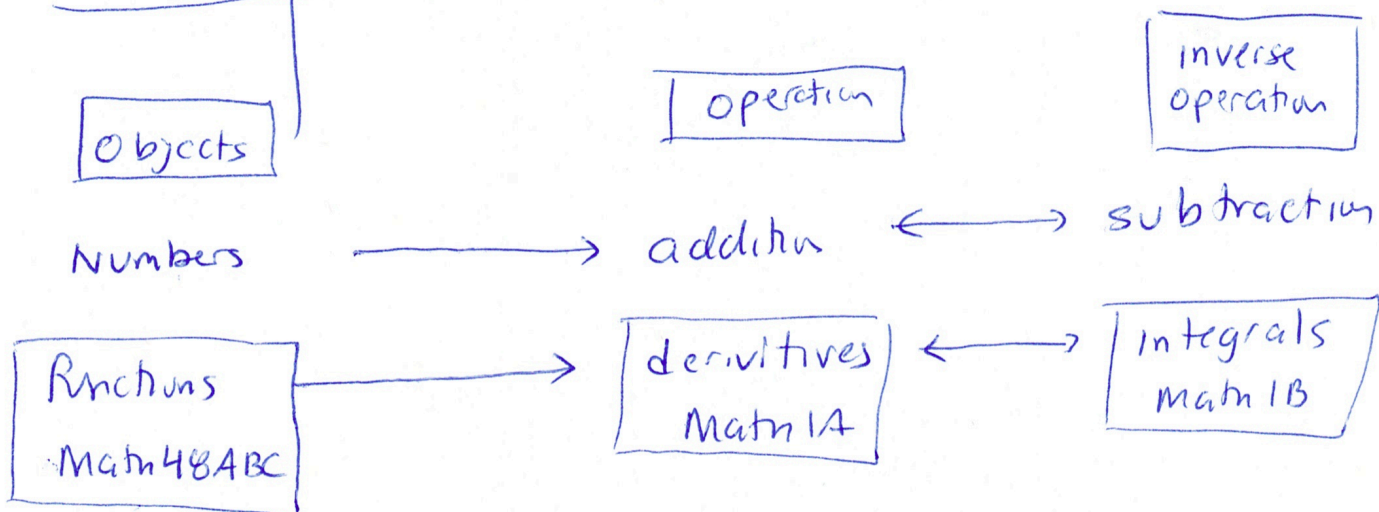 Objects
operation
inverse
operation
Numbers
addition
subtraction
functions
Math48ABC
derivitives
Math1A
integrals
Math1B